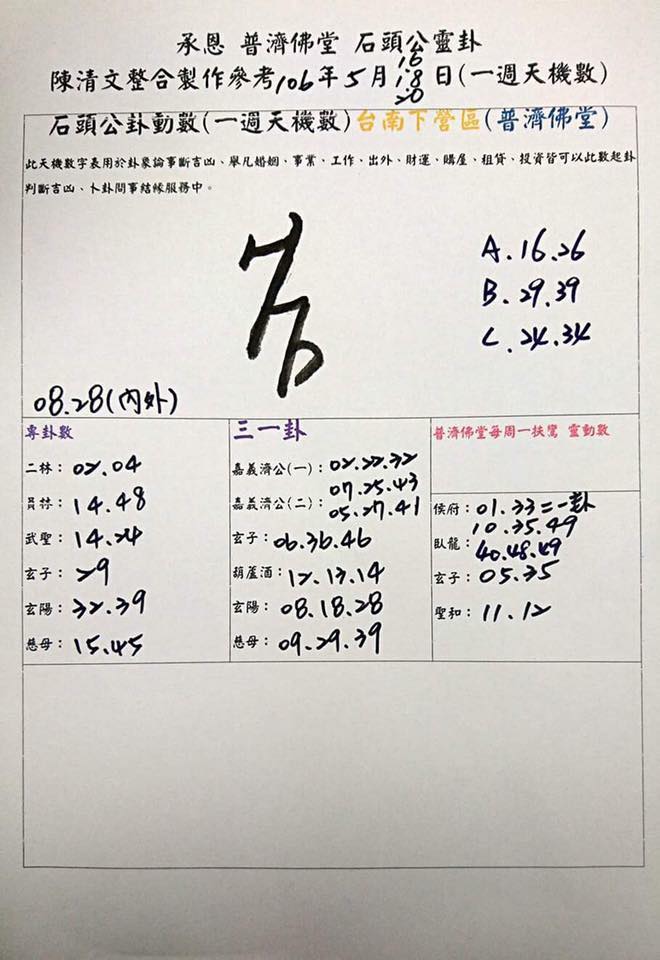 承恩 普濟佛堂 石頭公靈卦
16
陳清文整合製作參考106年5月18日(一週天機數)
20
石頭公卦動數(一週天機數)台南下營區(普濟佛堂)
此天機數字表用於卦象論事斷吉凶、舉凡婚姻、事業、工作、出外、財運、購屋、租賃、投資皆可以此數起卦
判斷吉凶、卜卦問事結緣服務中。
A.16.26
B.29.39
C.24.34
08.28(內外)
專卦數
二林：02.04
員林：14.48
武聖：14.24
玄子：29
玄陽：32.39
慈母：15.45
三一卦
嘉義濟公(一)：02.22.32
07.25.43
嘉義濟公(二)：05.27.41
玄子：06.36.46
葫蘆酒：12.13.14
玄陽：08.18.28
慈母：09.29.39
普濟佛堂每周一扶鸞 靈動數
侯府：01.33=一卦
10.35.49
臥龍：40.48.49
玄子：05.35
聖和：11.12